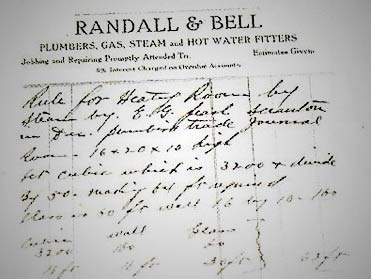 RANDALL & BELL
PLUMBERS, GAS, STEAM and HOT WATER FITTERS
Jobbing and Repairing Promptly Attended To. Estimates Given.
6% Interest Charged on Overdue Accounts
Rule for Heating Rooms by
Steam by. E. G. Scranton
in Dec. plumbers trade Journal
Room - 16 x 20 x 10 high
Get cubic which is 3200 & divide
by 50 - making 64 ft required
Glass is 20 ft wall 16 by 10 - 160
Cubic wall Glass
3200 160 20